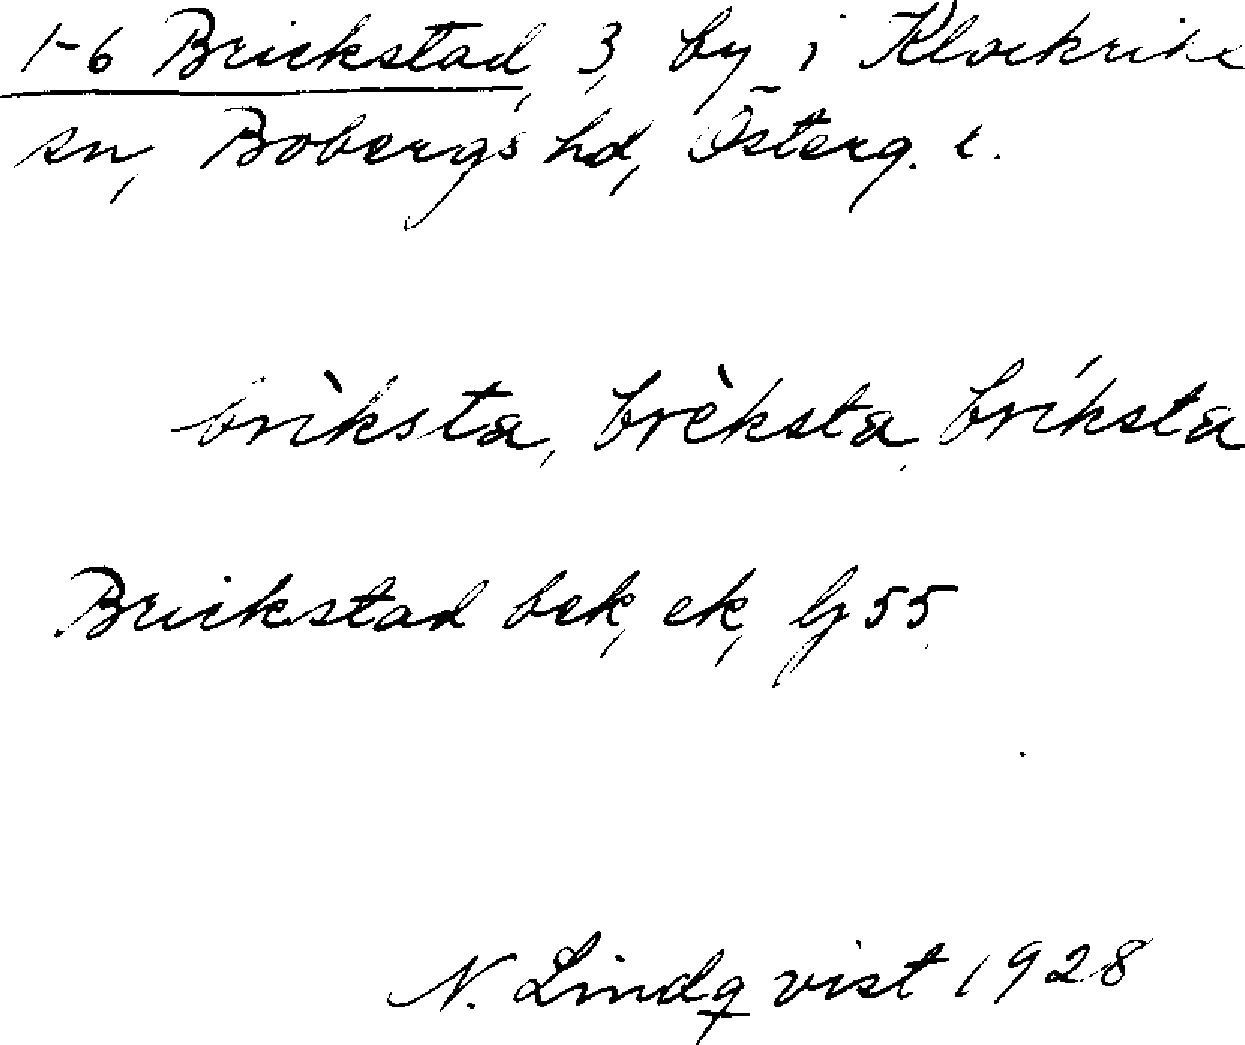 1-6 Brickstad, 3, by i Klockrike
sn, Bobergs hd, Österg. l.
brìksta, brèksta, bríksta
Brickstad bek, ek, bj 55.
N. Lindqvist 1928